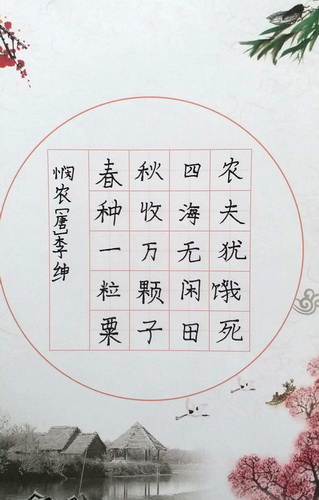 悯农[唐]李绅
春种一粒粟
秋收万颗子
四海无闲田
农夫犹饿死